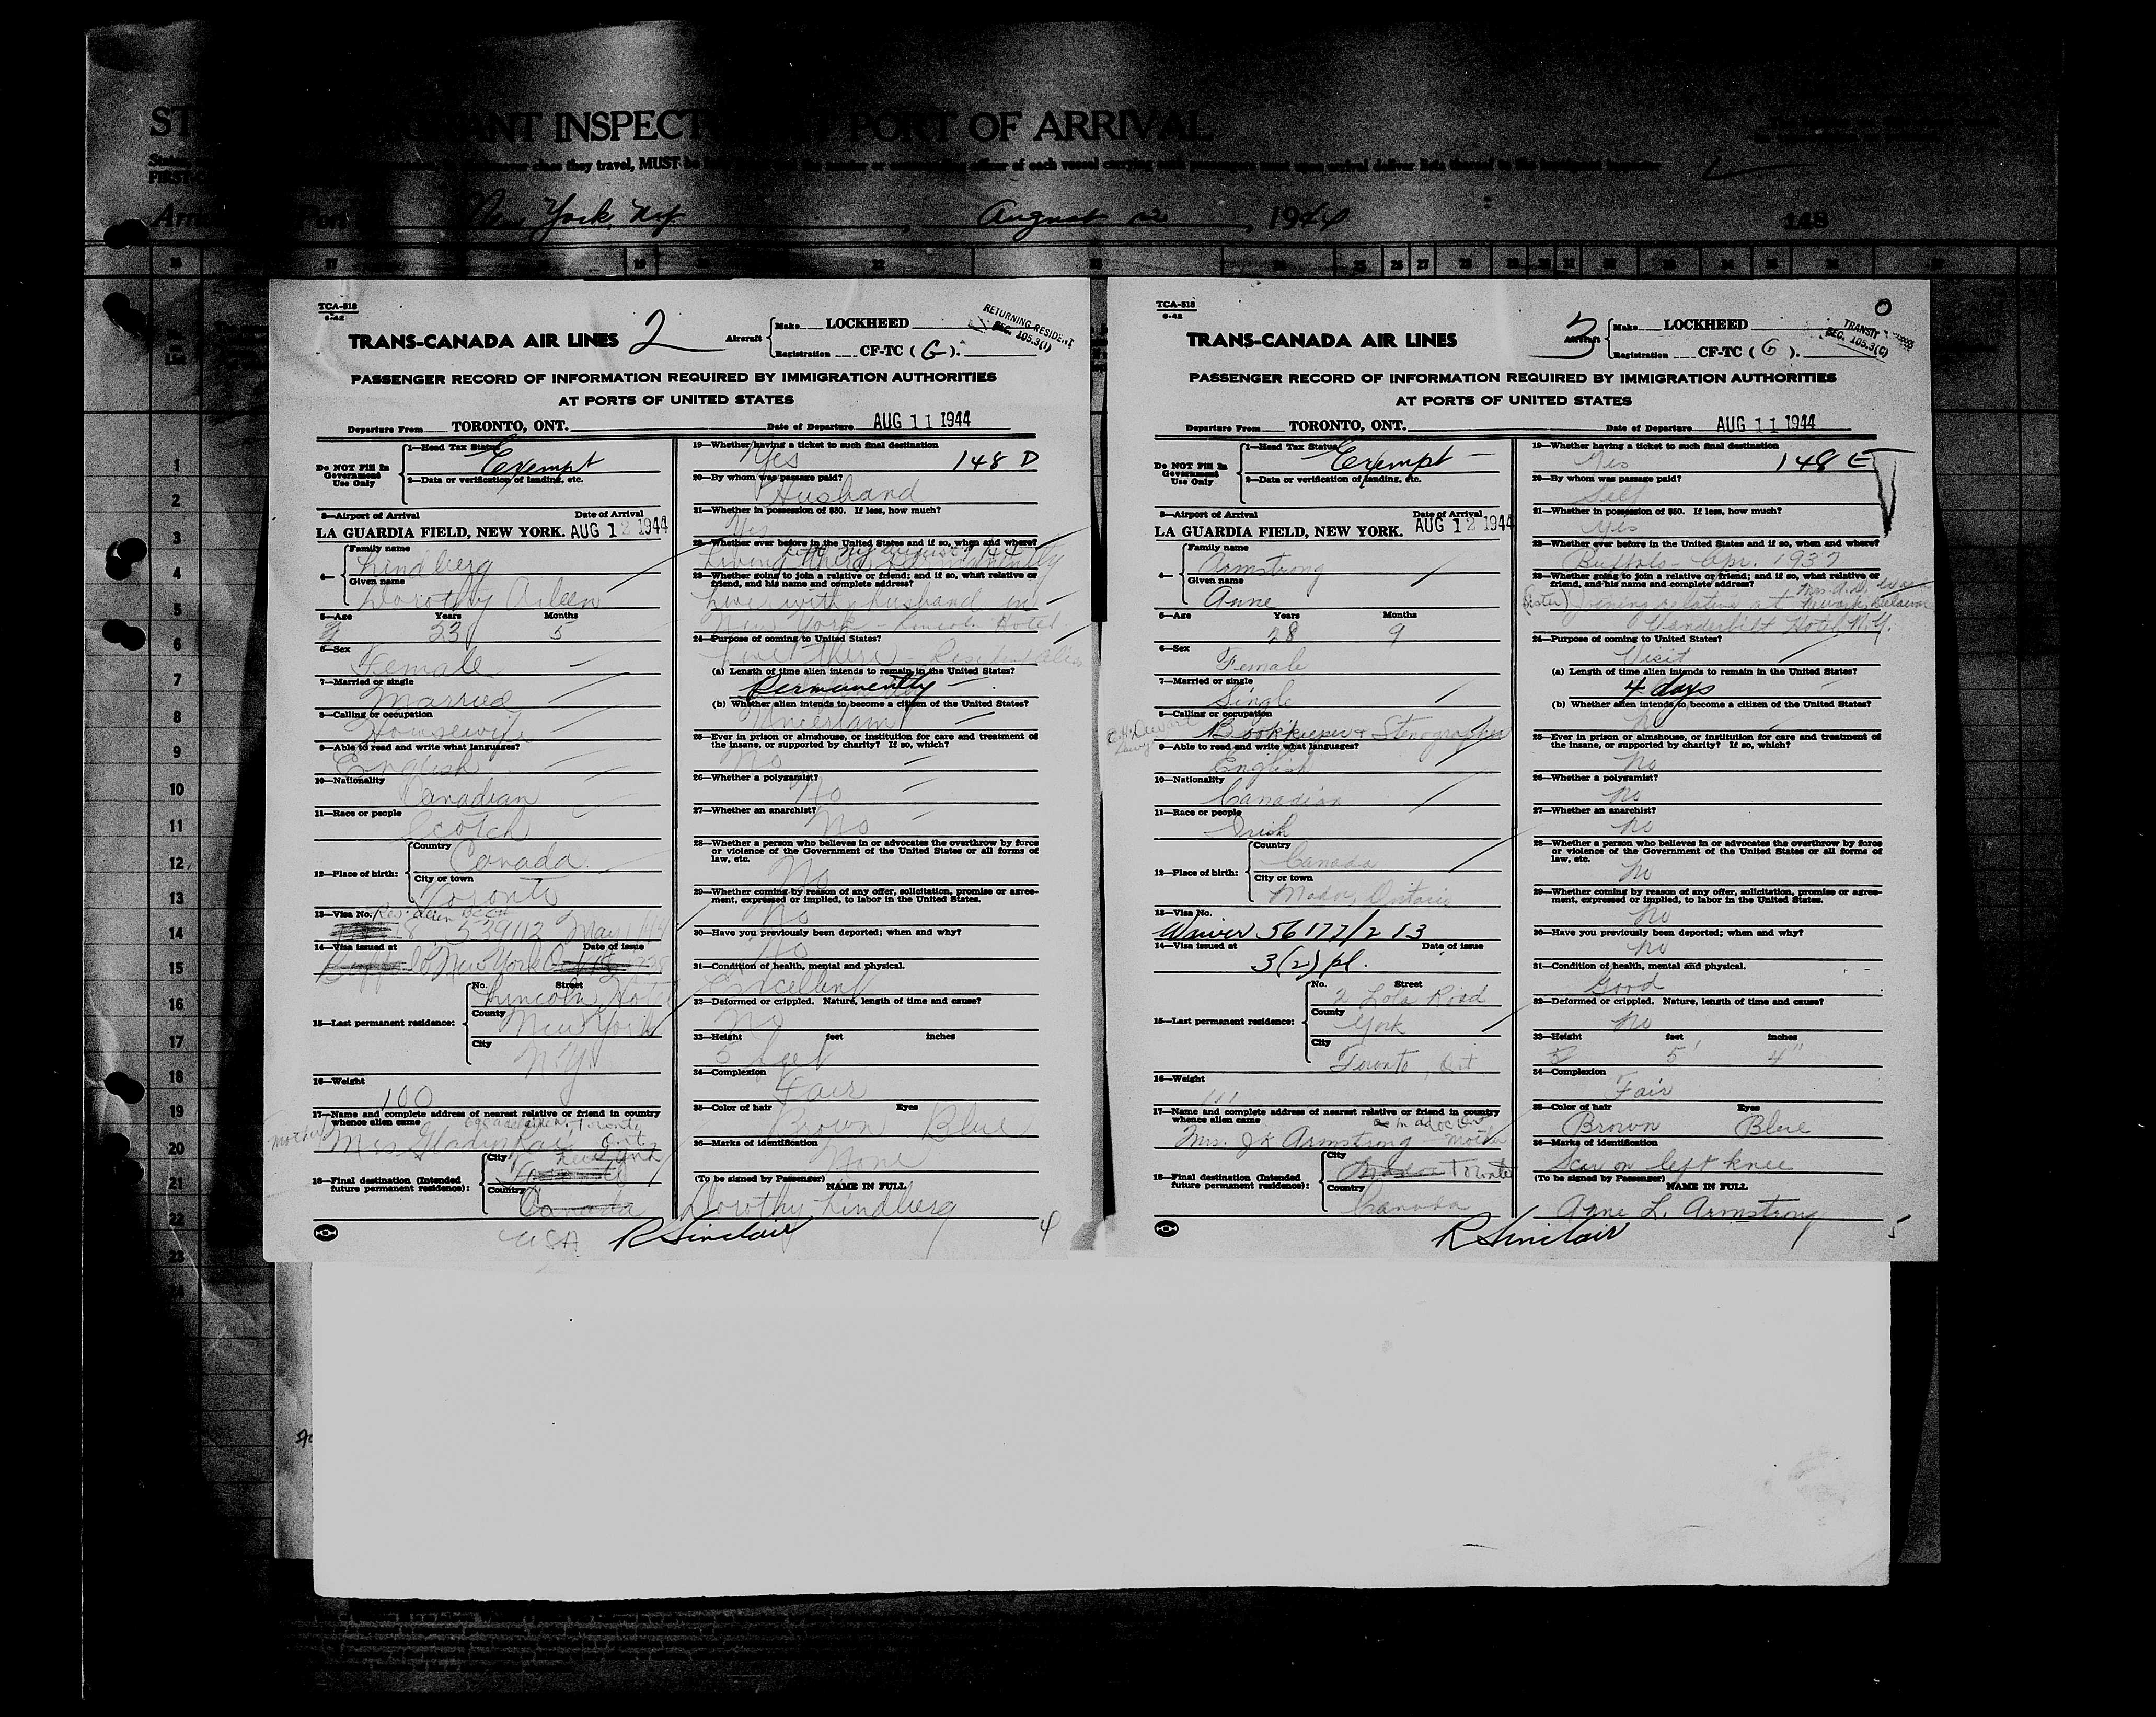 INSPECT PORT OF ARRIVAL
class they travel, MUST be
New York, NY, August 12, 1944
148
TCA-518
6-42
TRANS-CANADA AIR LINES 2
Aircraft Make LOCKHEED
Registration CF-TC (G).
RETURNING RESIDENT
SEC. 105.3(1)
PASSENGER RECORD OF INFORMATION REQUIRED BY IMMIGRATION AUTHORITIES
AT PORTS OF UNITED STATES
Departure From TORONTO, ONT. Date of Departure AUG 11 1944
Do NOT Fill In Government Use Only
1—Head Tax Status Exempt
2—Data or verification of landing, etc.
3—Airport of Arrival Date of Arrival
LA GUARDIA FIELD, NEW YORK. AUG 12 1944
4— Family name
Lindberg
Given name
Dorothy Aileen
5—Age Years Months
23 5
6—Sex
Female
7—Married or single
Married
8—Calling or occupation
Housewife
9—Able to read and write what languages?
English
10—Nationality
Canadian
11—Race or people
Scotch
12—Place of birth: Country
Canada
City or town
Toronto
13—Visa No.
539112 May
14—Visa issued at Date of issue
New York
15—Last permanent residence: No. Street
Lyncoln Hotel
County
New York
City
N.Y.
16—Weight
100
17—Name and complete address of nearest relative or friend in country whence alien came
mother Mrs Gladys Rae Toronto Ont.
18—Final destination (Intended future permanent residence): City
New York
Country
Canada
USA
19—Whether having a ticket to such final destination
Yes 148 D
20—By whom was passage paid?
Husband
21—Whether in possession of $50. If less, how much?
Yes
22—Whether ever before in the United States and if so, when and where?
Left NY August 9, 44
Living there permanently
23—Whether going to join a relative or friend; and if so, what relative or friend, and his name and complete address?
Live with husband in
New York - Lincoln Hotel.
24—Purpose of coming to United States?
Live there - Resident alien
(a) Length of time alien intends to remain in the United States?
Permanently
(b) Whether alien intends to become a citizen of the United States?
Uncertain
25—Ever in prison or almshouse, or institution for care and treatment of the insane, or supported by charity? If so, which?
No
26—Whether a polygamist?
No
27—Whether an anarchist?
No
28—Whether a person who believes in or advocates the overthrow by force or violence of the Government of the United States or all forms of law, etc.
No
29—Whether coming by reason of any offer, solicitation, promise or agreement, expressed or implied, to labor in the United States.
No
30—Have you previously been deported; when and why?
No
31—Condition of health, mental and physical.
Excellent
32—Deformed or crippled. Nature, length of time and cause?
No
33—Height feet inches
5 feet
34—Complexion
Fair
35—Color of hair Eyes
Brown Blue
36—Marks of identification
None
(To be signed by Passenger) NAME IN FULL
Dorothy Lindberg
R Sinclair 4
TCA-518
6-42
TRANS-CANADA AIR LINES 3
Aircraft Make LOCKHEED
Registration CF-TC (G).
TRANSIT
SEC. 105.3(C)
PASSENGER RECORD OF INFORMATION REQUIRED BY IMMIGRATION AUTHORITIES
AT PORTS OF UNITED STATES
Departure From TORONTO, ONT. Date of Departure AUG 11 1944
Do NOT Fill In Government Use Only
1—Head Tax Status Exempt
2—Data or verification of landing, etc.
3—Airport of Arrival Date of Arrival
LA GUARDIA FIELD, NEW YORK. AUG 12 1944
4— Family name
Armstrong
Given name
Anne
5—Age Years Months
28 9
6—Sex
Female
7—Married or single
Single
8—Calling or occupation
Bookkeeper & Stenographer
9—Able to read and write what languages?
English
10—Nationality
Canadian
11—Race or people
Irish
12—Place of birth: Country
Canada
City or town
Madoc, Ontario
13—Visa No.
Waiver 56177/213
14—Visa issued at Date of issue
3(2) pl.
15—Last permanent residence: No. Street
2 Lola Road
County
York
City
Toronto, Ont
16—Weight
111
17—Name and complete address of nearest relative or friend in country whence alien came
Madoc Ont
Mrs. J K Armstrong - mother
18—Final destination (Intended future permanent residence): City
Madoc Toronto
Country
Canada
19—Whether having a ticket to such final destination
Yes 148 E
20—By whom was passage paid?
Self
21—Whether in possession of $50. If less, how much?
Yes
22—Whether ever before in the United States and if so, when and where?
Buffalo - Apr. 1937
23—Whether going to join a relative or friend; and if so, what relative or friend, and his name and complete address?
(sister) Joining relative at Newark, Delaware
Vanderbilt Hotel N.Y.
24—Purpose of coming to United States?
Visit
(a) Length of time alien intends to remain in the United States?
4 days
(b) Whether alien intends to become a citizen of the United States?
No
25—Ever in prison or almshouse, or institution for care and treatment of the insane, or supported by charity? If so, which?
No
26—Whether a polygamist?
No
27—Whether an anarchist?
No
28—Whether a person who believes in or advocates the overthrow by force or violence of the Government of the United States or all forms of law, etc.
No
29—Whether coming by reason of any offer, solicitation, promise or agreement, expressed or implied, to labor in the United States.
No
30—Have you previously been deported; when and why?
No
31—Condition of health, mental and physical.
Good
32—Deformed or crippled. Nature, length of time and cause?
No
33—Height feet inches
5' 4"
34—Complexion
Fair
35—Color of hair Eyes
Brown Blue
36—Marks of identification
Scar on left knee
(To be signed by Passenger) NAME IN FULL
Anne L. Armstrong
R Sinclair 5